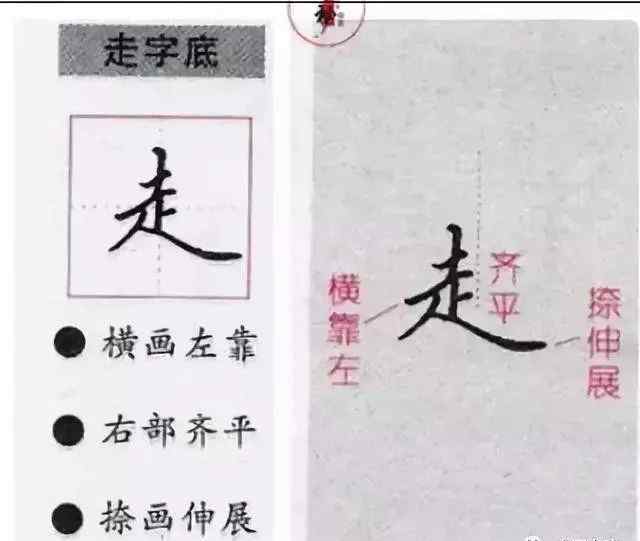 走字底
走
横画左靠
右部齐平
捺画伸展
走
横靠左
齐平
捺伸展